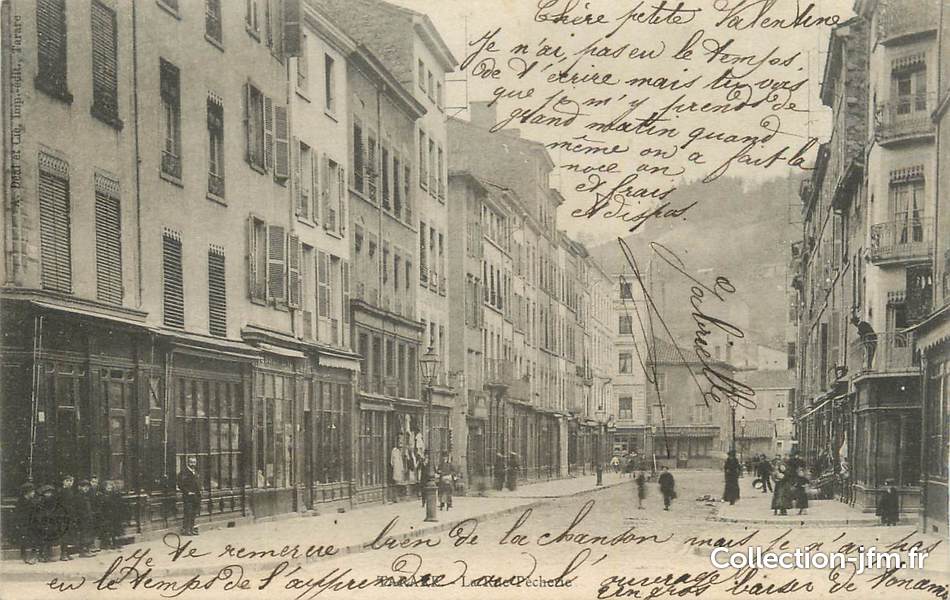 Chère petite Valentine
Je n'ai pas eu le temps
de t'écrire mais tu vois
que je m'y prends de
grand matin quand
même on a fait la
noce on
Gabrielle
Je te remercie bien de la chanson mais je n'ai pas
eu le temps de l'apprendre vu l'ouvrage
un gros baiser de ton amie
TARARE - La Rue Pêcherie
Imp.-édit., Tarare
Collection-jfm.fr